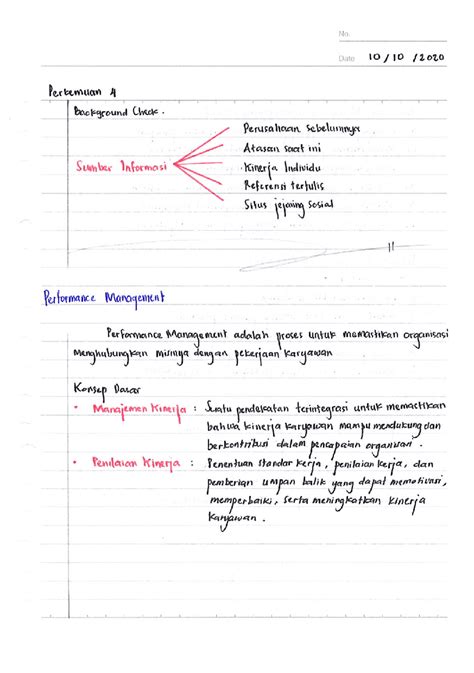 No.
Date 10/10/2020
Pertemuan 4
Background Check.
Sumber Informasi
Perusahaan sebelumnya
Atasan saat ini
Kinerja Individu
Referensi tertulis
Situs jejaring sosial
Performance Management
Performance Management adalah proses untuk memastikan organisasi
Menghubungkan misinya dengan pekerjaan karyawan
Konsep Dasar
• Manajemen Kinerja : Suatu pendekatan terintegrasi untuk memastikan
bahwa kinerja karyawan mampu mendukung dan
berkontribusi dalam pencapaian organisasi.
• Penilaian Kinerja : Penentuan standar kerja, penilaian kerja, dan
pemberian umpan balik yang dapat memotivasi,
memperbaiki, serta meningkatkan kinerja
Karyawan.